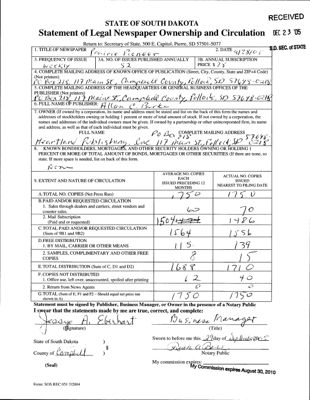 RECEIVED
DEC 23 '05
S.D. SEC. OF STATE
STATE OF SOUTH DAKOTA
Statement of Legal Newspaper Ownership and Circulation
Return to: Secretary of State, 500 E. Capitol, Pierre, SD 57501-5077
1. TITLE OF NEWSPAPER Prairie Pioneer
2. DATE
3. FREQUENCY OF ISSUE
weekly
3A. NO. OF ISSUES PUBLISHED ANNUALLY
52
3B. ANNUAL SUBSCRIPTION
PRICE $
4. COMPLETE MAILING ADDRESS OF KNOWN OFFICE OF PUBLICATION (Street, City, County, State and ZIP+4 Code)
(Not printers)
Po Box 218, 117 Main St, Campbell County, Pollock, SD 57648-0218
5. COMPLETE MAILING ADDRESS OF THE HEADQUARTERS OR GENERAL BUSINESS OFFICES OF THE
PUBLISHER (Not printers)
Po Box 218, 117 Main St, Campbell County, Pollock, SD 57648-0218
6. FULL NAME OF PUBLISHER: Allan C. Burke
7. OWNER (If owned by corporation, its name and address must be stated and also the names and
addresses of stockholders owning or holding 1 percent or more of total amount of stock. If not owned by a corporation, the
names and addresses of the individual owners must be given. If owned by a partnership or other unincorporated firm, its name
and address, as well as that of each individual must be given.
FULL NAME
COMPLETE MAILING ADDRESS
Heartland Publishing, Inc 117 Main St, Pollock SD
8. KNOWN BONDHOLDERS, MORTGAGEES, AND OTHER SECURITY HOLDERS OWNING OR HOLDING 1
PERCENT OR MORE OF TOTAL AMOUNT OF BONDS, MORTGAGES OR OTHER SECURITIES (If there are none, so
state. If more space is needed, list on back of this form.
None
9. EXTENT AND NATURE OF CIRCULATION
AVERAGE NO. COPIES
EACH
ISSUED PRECEDING 12
MONTHS
ACTUAL NO. COPIES
ISSUED
NEAREST TO FILING DATE
A. TOTAL NO. COPIES (Net Press Run) 1750 1750
B. PAID AND/OR REQUESTED CIRCULATION
1. Sales through dealers and carriers, street vendors and
counter sales. 60 70
2. Mail Subscription
(Paid and/or requested) 1504 1486
C. TOTAL PAID AND/OR REQUESTED CIRCULATION
(Sum of 9B1 and 9B2) 1564 1556
D. FREE DISTRIBUTION
1. BY MAIL, CARRIER OR OTHER MEANS 115 139
2. SAMPLES, COMPLIMENTARY AND OTHER FREE
COPIES 15
E. TOTAL DISTRIBUTION (Sum of C, D1 and D2) 1688 1710
F. COPIES NOT DISTRIBUTED
1. Office use, left over, unaccounted, spoiled after printing 62 40
2. Return from News Agents 0 0
G. TOTAL (Sum of E, F1 and F2 - Should equal net press run
shown in A) 1750 1750
Statement must be signed by Publisher, Business Manager, or Owner in the presence of a Notary Public
I swear that the statements made by me are true, correct, and complete:
Eberhart Business Manager
(Signature) (Title)
State of South Dakota )
County of Campbell )
Sworn to before me this 29 day of
Notary Public
(Seal)
My commission expires:
My Commission expires August 30, 2010